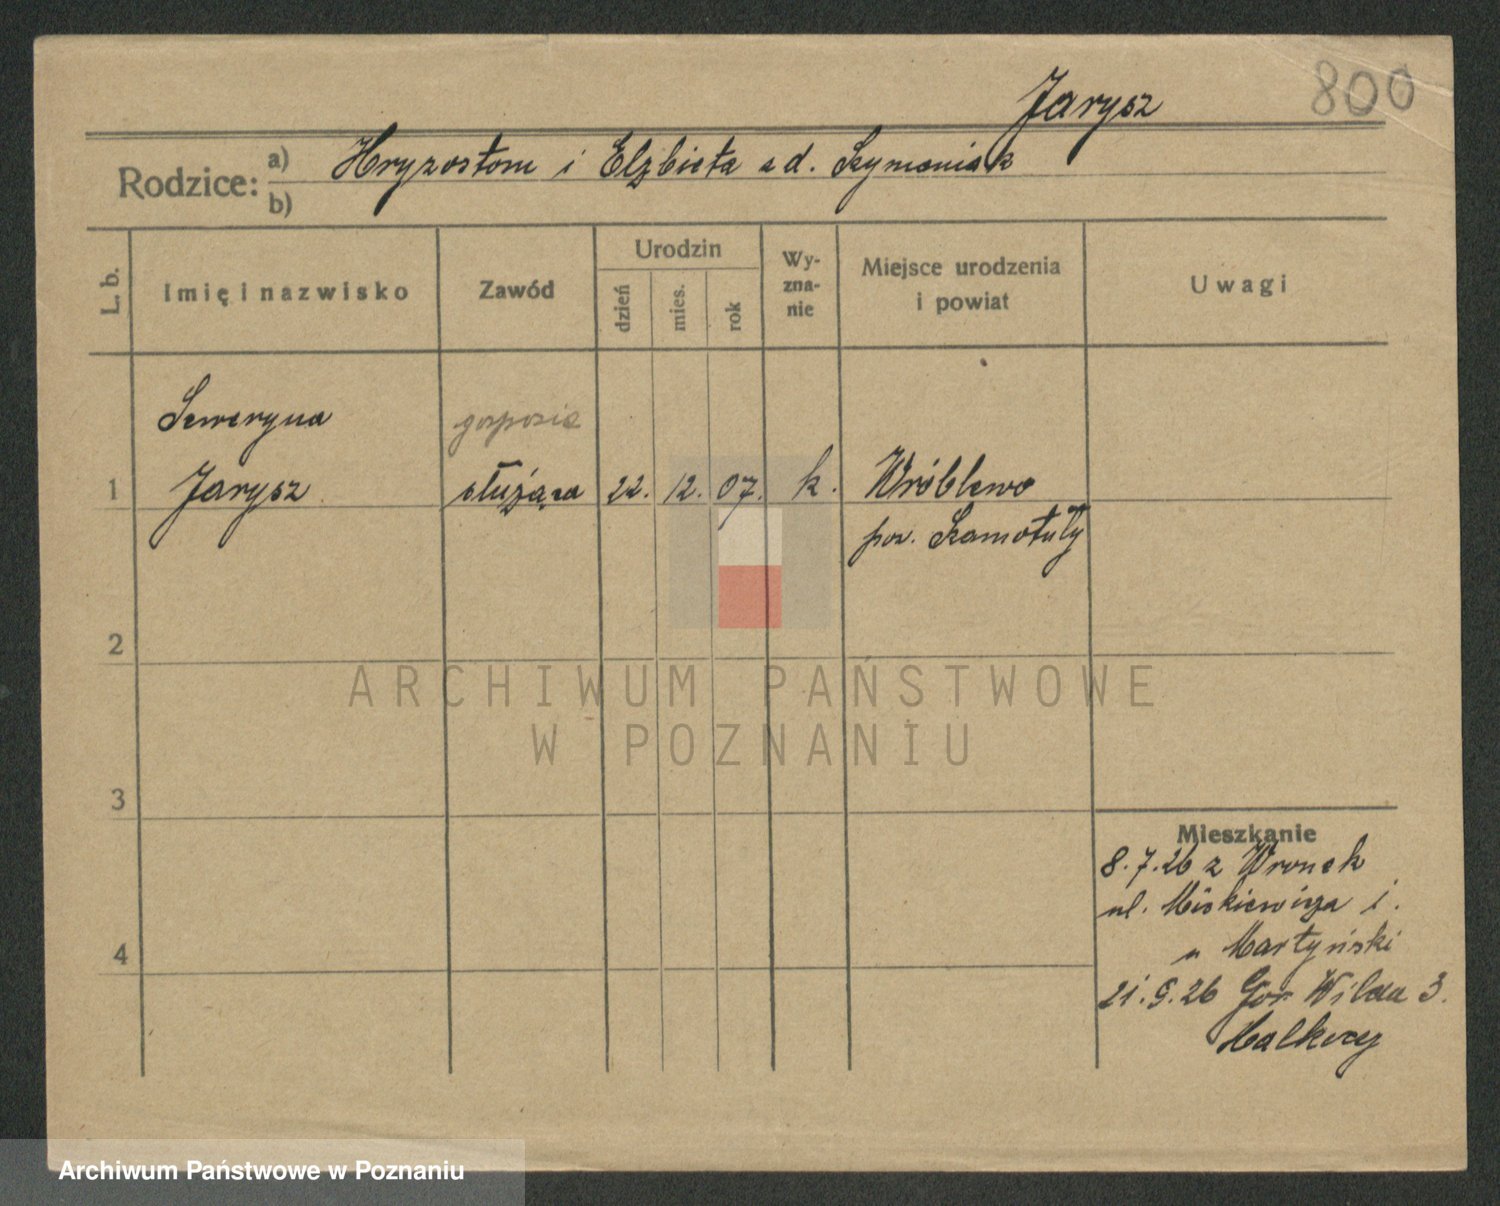 800
Jarysz
Rodzice: a) Hryzostom i Elzbieta z d. Szymaniak
b)
L. b. Imię i nazwisko Zawód Urodzin dzień mies. rok Wy-zna-nie Miejsce urodzenia i powiat Uwagi
Seweryna gosposia
1 Jarysz służąca 22. 12. 07. k. Wróblewo
pow. Szamotuły
2
ARCHIWUM PAŃSTWOWE
W POZNANIU
3
Mieszkanie
8.7.26 z Wronek
ul. Mickiewicza 1.
u Martyński
4
21.9.26 Gor Wilda 3.
Archiwum Państwowe w Poznaniu